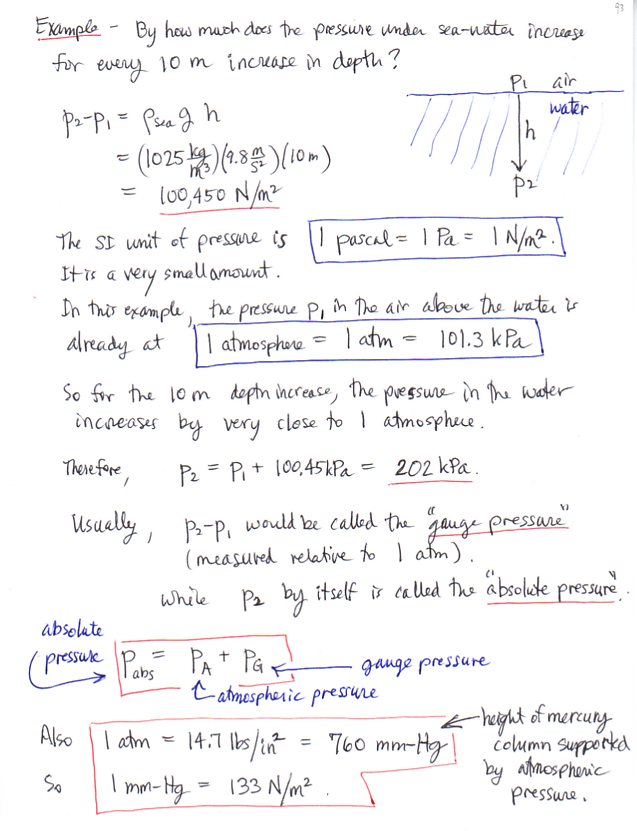 93
Example - By how much does the pressure under sea-water increase
for every 10 m increase in depth?
P1 air
water
h
P2
p2-p1 = ρsea g h
= (1025 kg/m³)(9.8 m/s²)(10m)
= 100,450 N/m²
The SI unit of pressure is 1 pascal = 1 Pa = 1 N/m².
It is a very small amount.
In this example, the pressure p1 in the air above the water is
already at 1 atmosphere = 1 atm = 101.3 kPa
So for the 10 m depth increase, the pressure in the water
increases by very close to 1 atmosphere.
Therefore, P2 = P1 + 100.45kPa = 202 kPa.
Usually, p2-p1 would be called the "gauge pressure"
(measured relative to 1 atm).
while p2 by itself is called the "absolute pressure".
absolute
pressure
Pabs = PA + PG gauge pressure
atmospheric pressure
Also 1 atm = 14.7 lbs/in² = 760 mm-Hg
So 1 mm-Hg = 133 N/m².
height of mercury
column supported
by atmospheric
pressure.